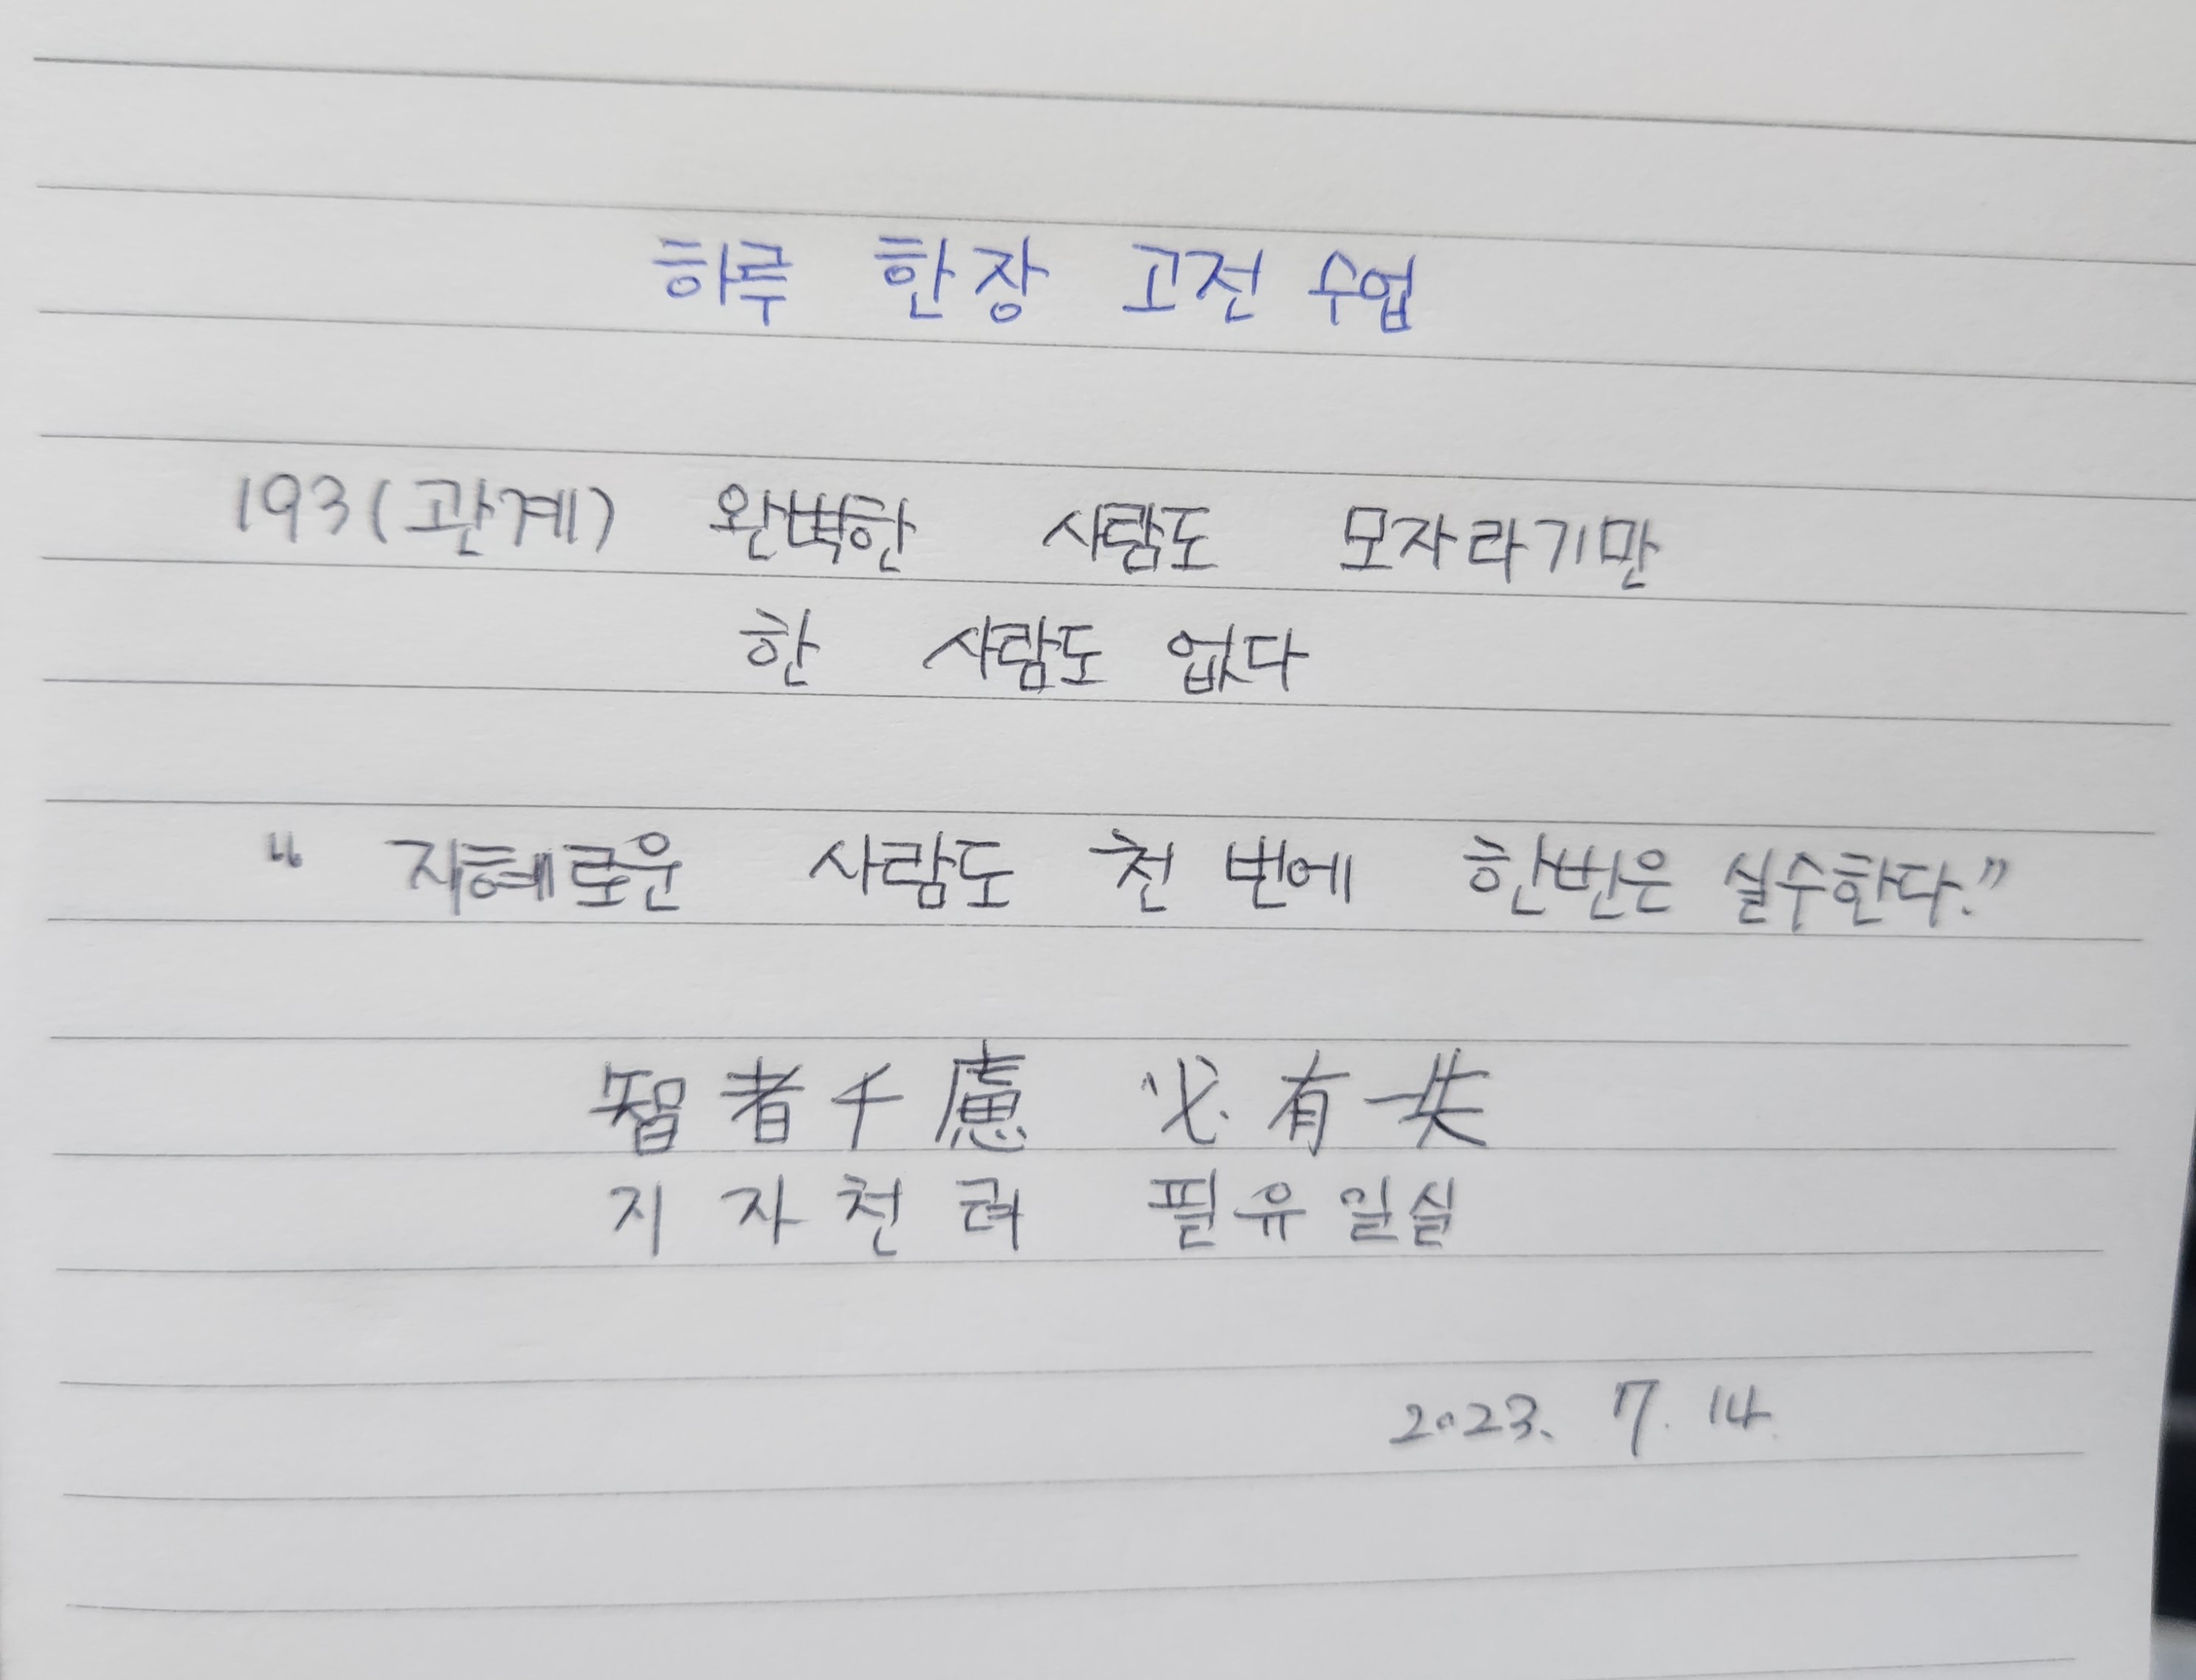 하루 한장 고전 수업
193(관계) 완벽한 사람도 모자라기만
한 사람도 없다
" 지혜로운 사람도 천 번에 한번은 실수한다."
智者千慮 必有一失
지자천려 필유일실
2023. 7. 14.